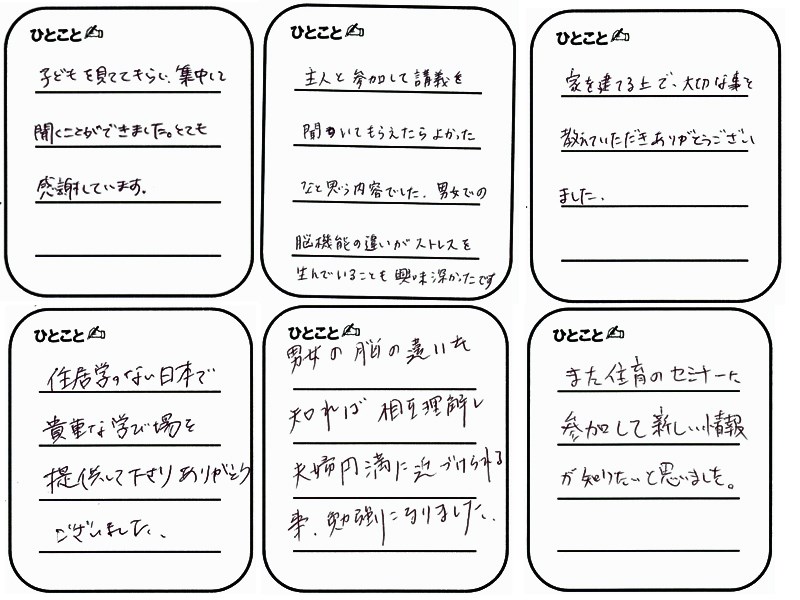 ひとこと
子どもを見ててもらい、集中して
聞くことができました。とても
感謝しています。
ひとこと
主人と参加して講義を
聞いてもらえたらよかった
なと思う内容でした。男女での
脳機能の違いがストレスを
生んでいることも興味深かったです
ひとこと
家を建てる上で、大切な事を
教えていただきありがとうござい
ました。
ひとこと
住居学のない日本で
貴重な学び場を
提供して下さりありがとう
ございました。
ひとこと
男女の脳の違いを
知れば相互理解し
夫婦円満に近づけられる
事、勉強になりました。
ひとこと
また住育のセミナーに
参加して新しい情報
が知りたいと思いました。